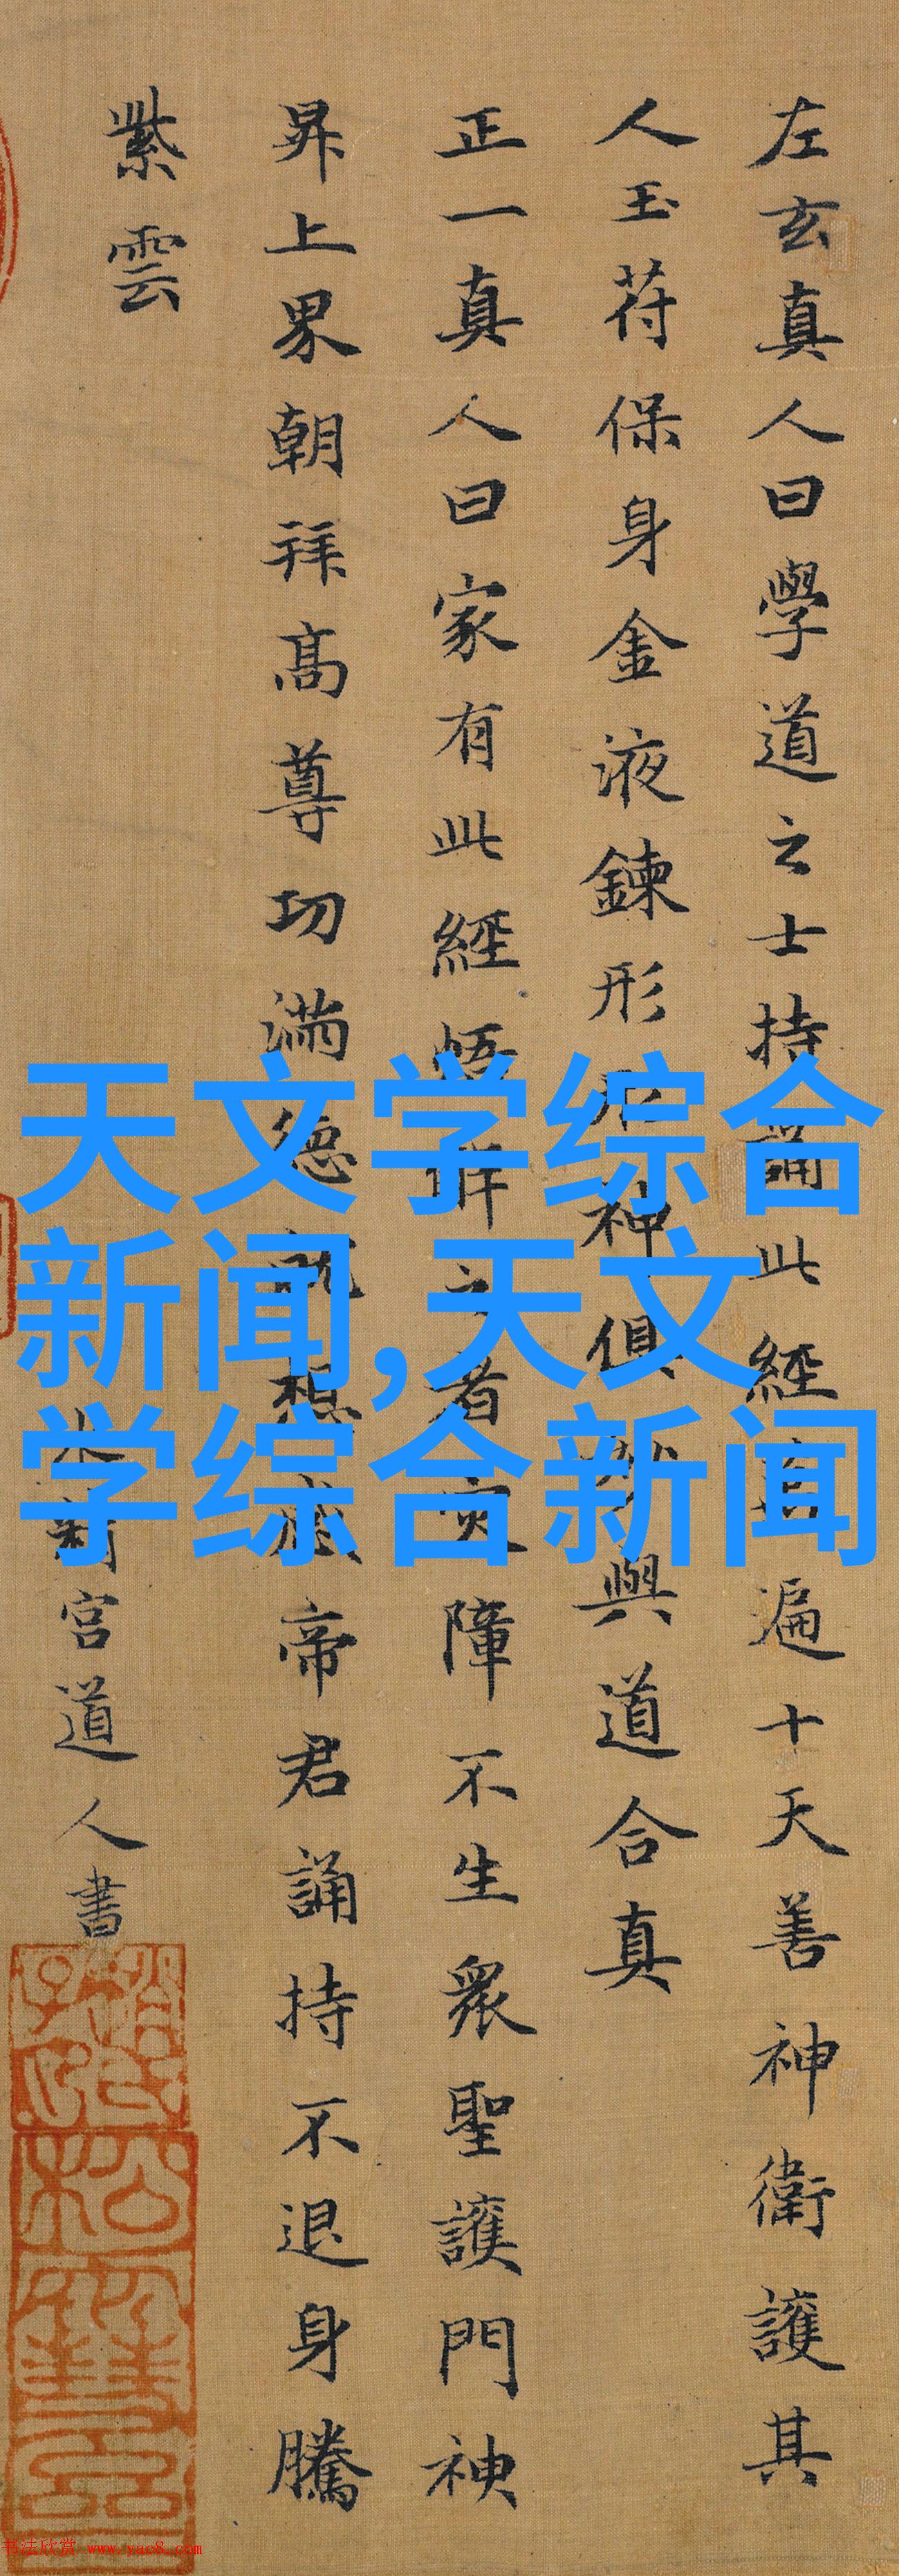 左玄真人曰學道之士持誦此經萬遍十天善神衛護其
人玉苻保身金液鍊形形神俱妙與道合真
正一真人曰家有此經悟解之者災障不生眾聖護門神
昇上界朝拜高尊功滿德就想感帝君誦持不退身騰
紫雲
水精宮道人書
天文学综合
新闻,天文
学综合新闻
书法欣赏 www.yac8.com